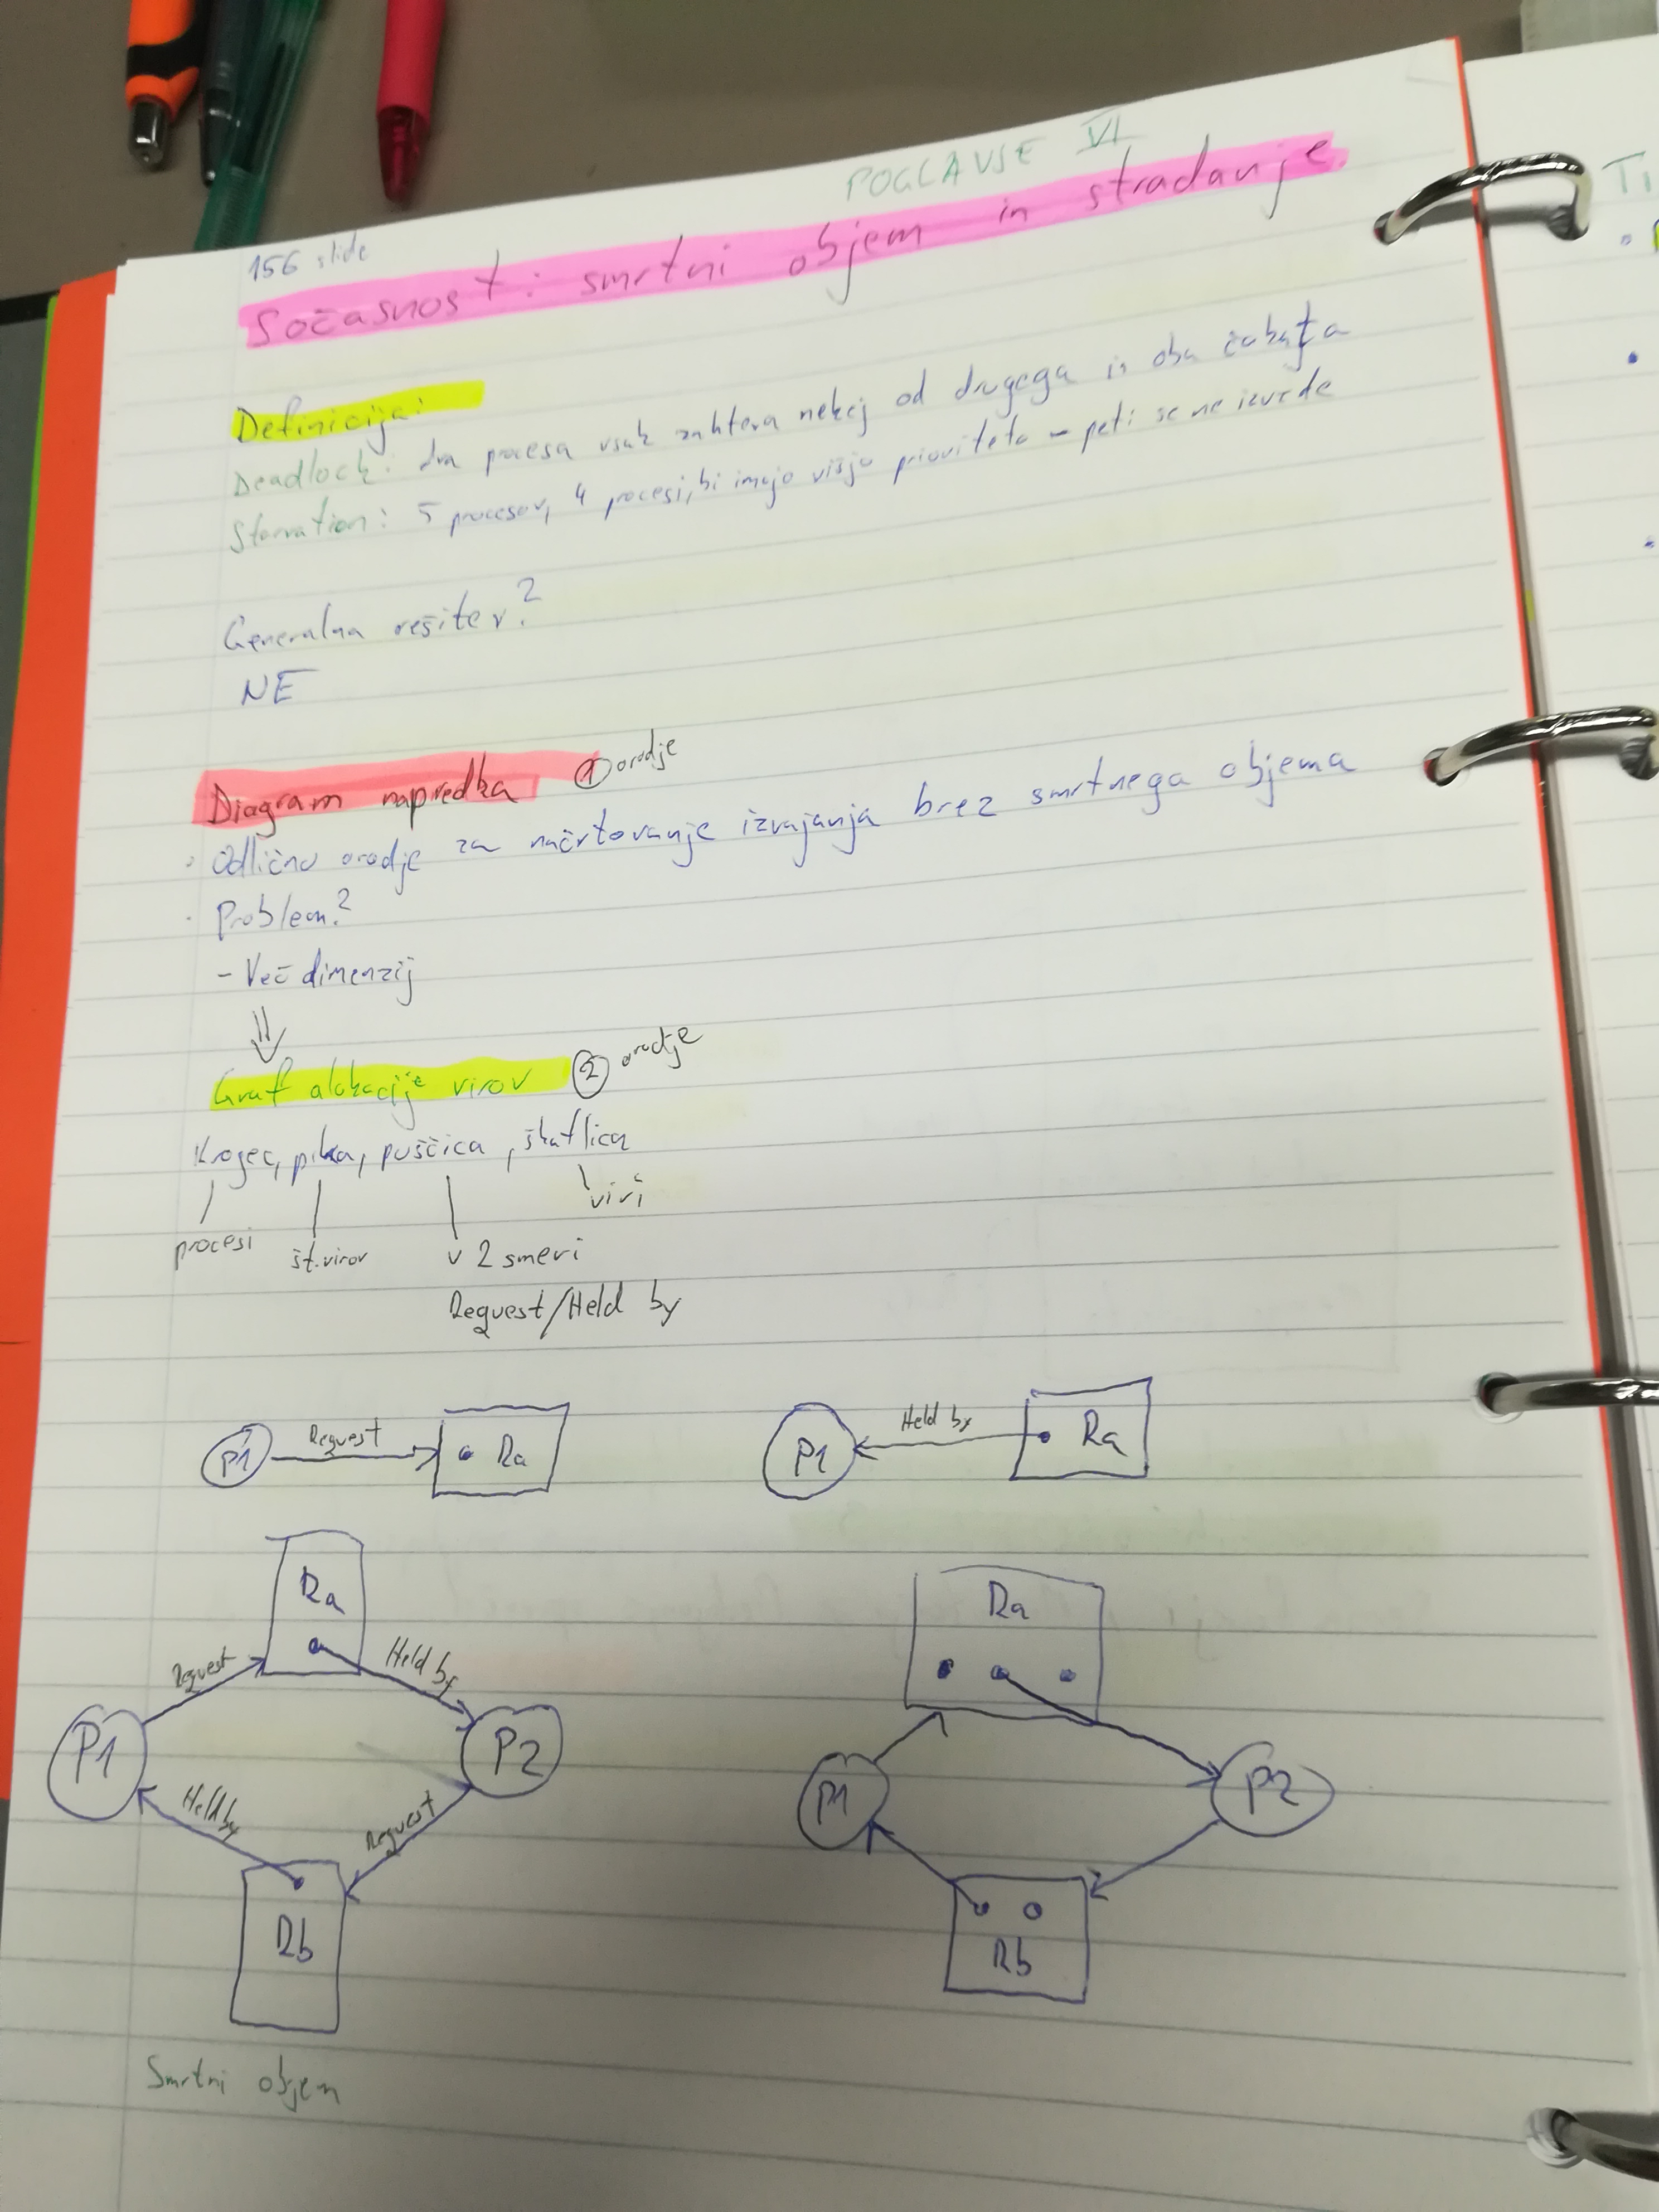 POGLAVJE VI
156 slide
Sočasnost: smrtni objem in stradanje.
Definicija:
Deadlock: dva procesa vsak zahteva nekej od drugega in oba čakata
Starvation: 5 procesov, 4 procesi, ki imajo višjo prioriteto - peti se ne izvede
Generalna rešitev?
NE
Diagram napredka ① orodje
· Odlično orodje za načrtovanje izvajanja brez smrtnega objema
· Problem?
- Več dimenzij
⇓
Graf alokacije virov ② orodje
Krogec, pika, puščica, škatlica
viri
procesi št. virov v 2 smeri
Request/Held by
P1 Request Ra P1 Held by Ra
Ra Ra
Request Held by
P1 P2 P1 P2
Held by Request
Rb Rb
Smrtni objem
Ti